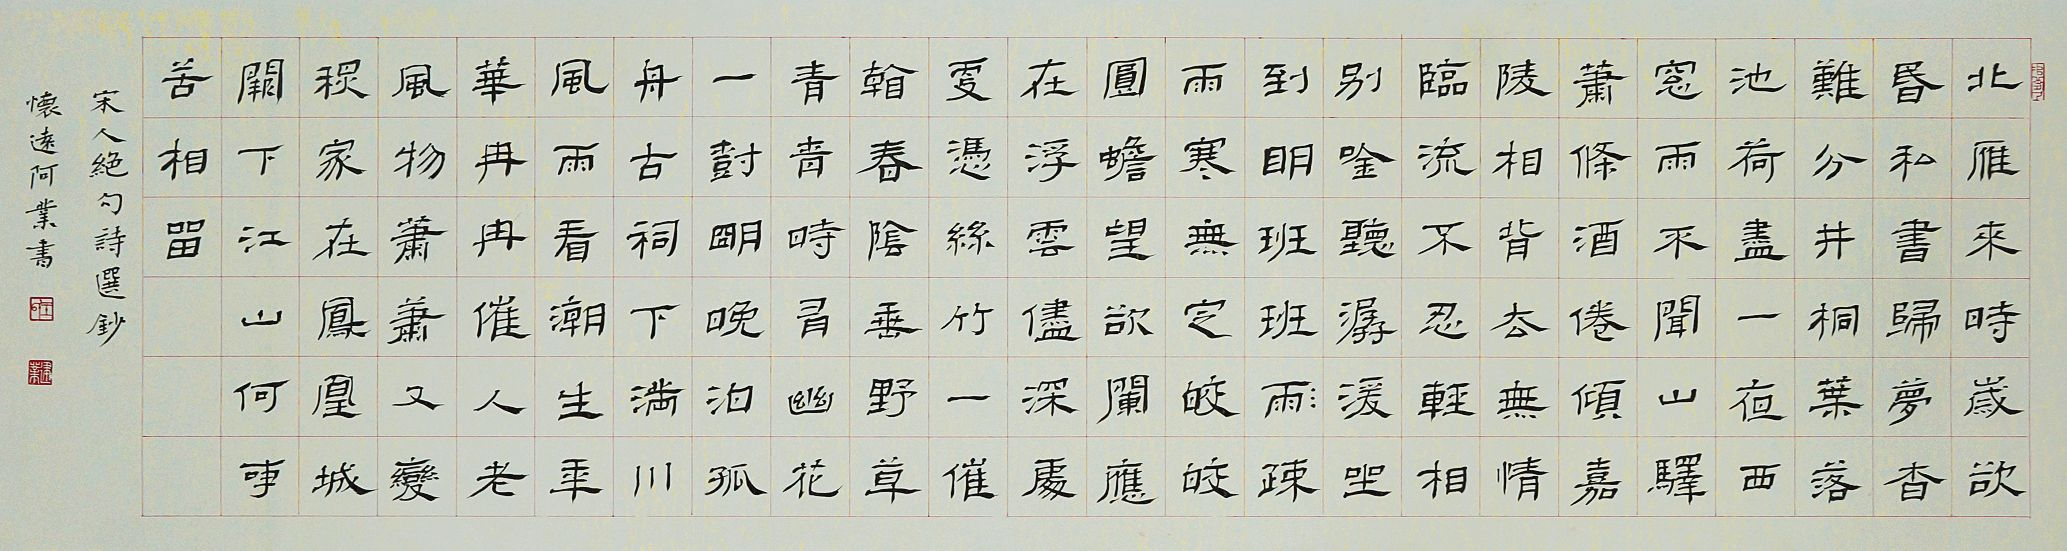 北雁來時歲欲
昏私書歸夢杳
難分井桐葉落
池荷盡一夜西
窓雨不聞山驛
蕭條酒倦傾嘉
陵相背去無情
臨流不忍輕相
別唫聽潺湲坐
到明班班雨疎
雨寒無定皎皎
圓蟾望欲闌應
在浮雲儘深處
更憑絲竹一催
看春陰垂野草
青青時有幽花
一樹明晚泊孤
舟古祠下滿川
風雨看潮生年
華冉冉催人老
風物蕭蕭又變
秋家在鳳凰城
闕下江山何事
苦相留
宋人絕句詩選鈔
懷遠阿業書